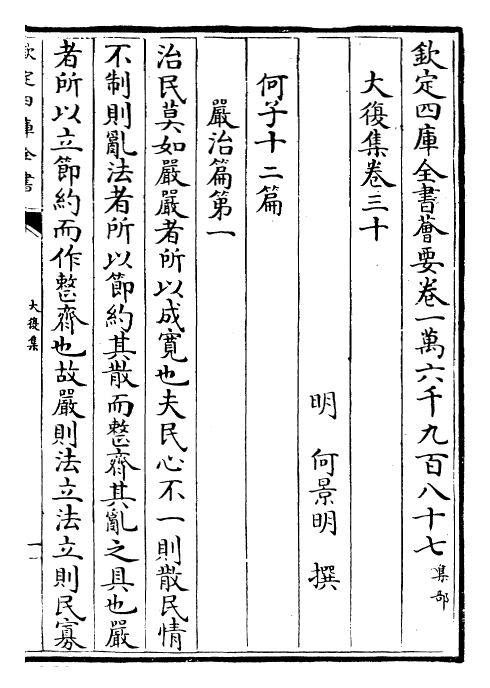 欽定四庫全書薈要卷一萬六千九百八十七集部
大復集卷三十
明　何景明　撰
何子十二篇
嚴治篇第一
治民莫如嚴嚴者所以成寛也夫民心不一則散民情
不制則亂法者所以節約其散而整齊其亂之具也嚴
者所以立節約而作整齊也故嚴則法立法立則民寡
欽定四庫全書
大復集
一